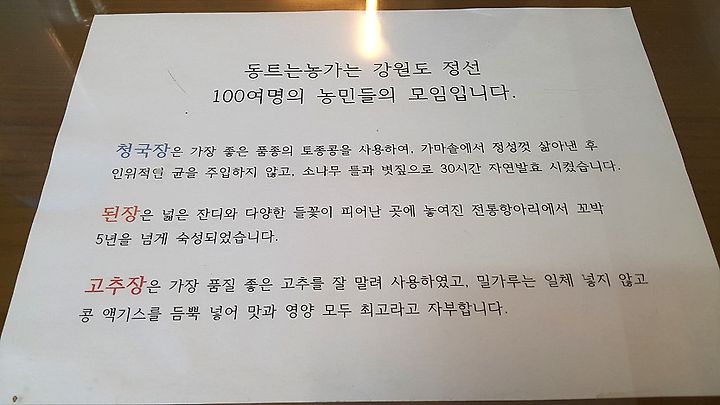 동트는농가는 강원도 정선
100여명의 농민들의 모임입니다.
청국장은 가장 좋은 품종의 토종콩을 사용하여, 가마솥에서 정성껏 삶아낸 후
인위적인 균을 주입하지 않고, 소나무 틀과 볏짚으로 30시간 자연발효 시켰습니다.
된장은 넓은 잔디와 다양한 들꽃이 피어난 곳에 놓여진 전통항아리에서 꼬박
5년을 넘게 숙성되었습니다.
고추장은 가장 품질 좋은 고추를 잘 말려 사용하였고, 밀가루는 일체 넣지 않고
콩 액기스를 듬뿍 넣어 맛과 영양 모두 최고라고 자부합니다.